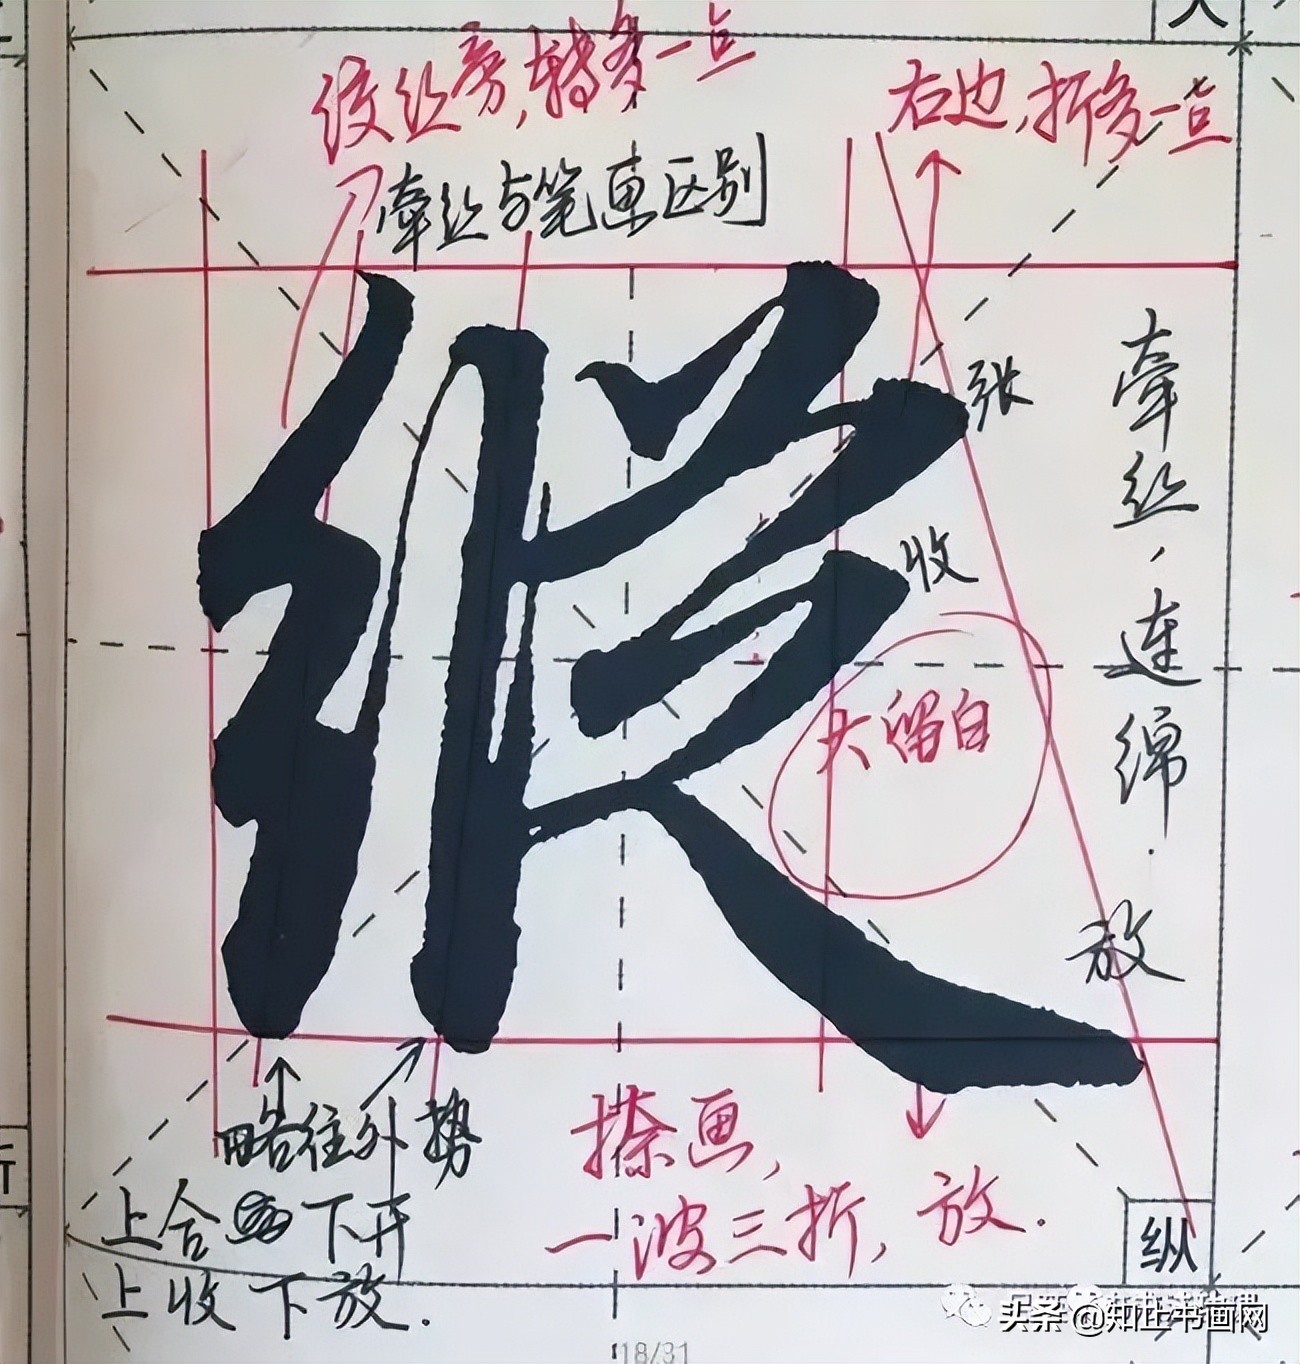 绞丝旁,转多一点
右边,折多一点
牵丝与笔画区别
纵
张
收
大留白
牵丝,连绵.
放
略往外势
上合下开
上收下放.
捺画,
一波三折,放.
纵
头条@知止书画网
18/31